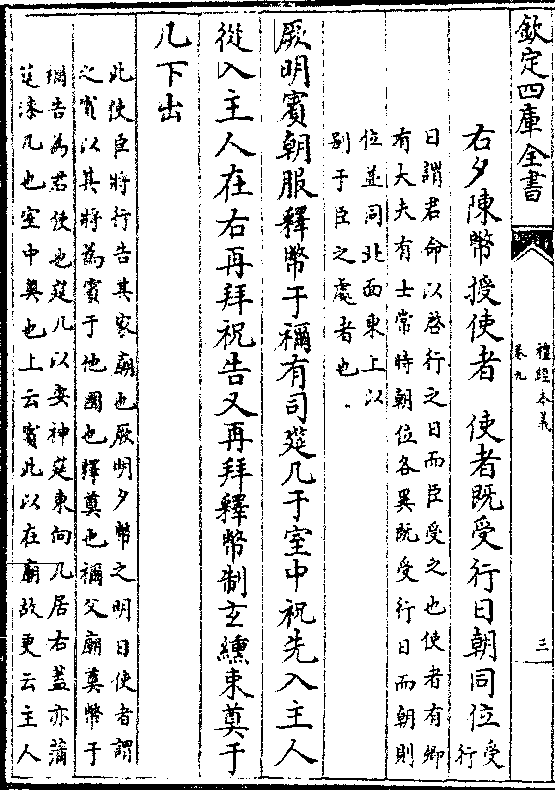 欽定四庫全書
禮經本義
卷九
三
右夕陳幣授使者 使者既受行日朝同位受
行
日謂君命以啓行之日而臣受之也使者有卿
有大夫有士常時朝位各異既受行日而朝則
位並同北面東上以
别于臣之處者也
厥明賓朝服釋幣于禰有司筵几于室中祝先入主人
從入主人在右再拜祝告又再拜釋幣制玄纁束奠于
几下出
此使臣將行告其家廟也厥明夕幣之明日使者謂
之賓以其將為賓于他國也釋奠也禰父廟奠幣于
禰告為君使也筵几以安神筵東向几居右蓋亦蒲
筵漆几也室中奥也上云賓此以在廟故更云主人